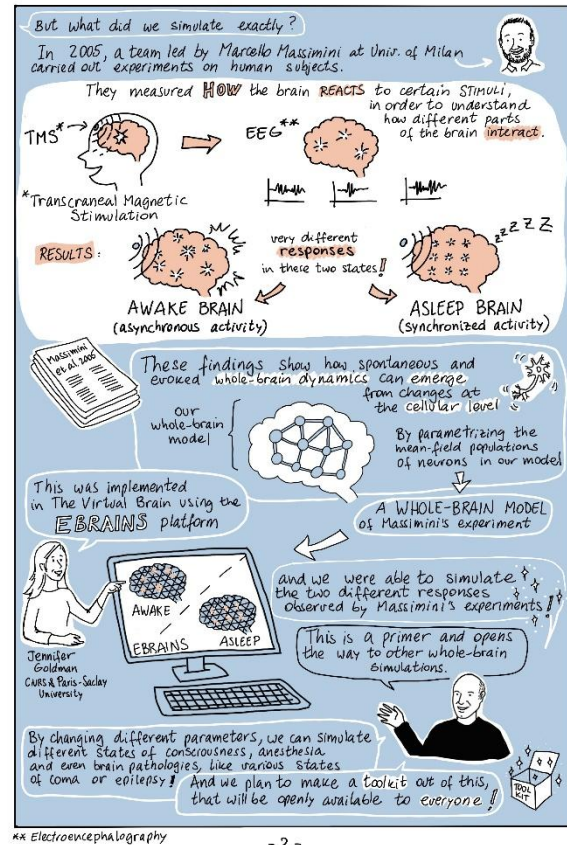 But what did we simulate exactly?
In 2005, a team led by Marcello Massimini at Univ. of Milan
carried out experiments on human subjects.
They measured HOW the brain REACTS to certain STIMULI,
in order to understand
how different parts
of the brain interact.
TMS*
EEG**
*Transcraneal Magnetic
Stimulation
RESULTS:
very different
responses
in these two states!
zzZZZZ
AWAKE BRAIN
(asynchronous activity)
ASLEEP BRAIN
(synchronized activity)
Massimini
et al. 2005
These findings show how spontaneous and
evoked whole-brain dynamics can emerge
from changes at
the cellular level
our
whole-brain
model
By parametrizing the
mean-field populations
of neurons in our model
This was implemented
in The Virtual Brain using the
EBRAINS platform
A WHOLE-BRAIN MODEL
of Massimini's experiment
AWAKE
EBRAINS
ASLEEP
Jennifer
Goldman
CNRS & Paris-Saclay
University
and we were able to simulate
the two different responses
observed by Massimini's experiments!
This is a primer and opens
the way to other whole-brain
simulations.
By changing different parameters, we can simulate
different states of consciousness, anesthesia
and even brain pathologies, like various states
of coma or epilepsy!
And we plan to make a toolkit out of this,
that will be openly available to everyone!
TOOL
KIT
** Electroencephalography
- 2 -